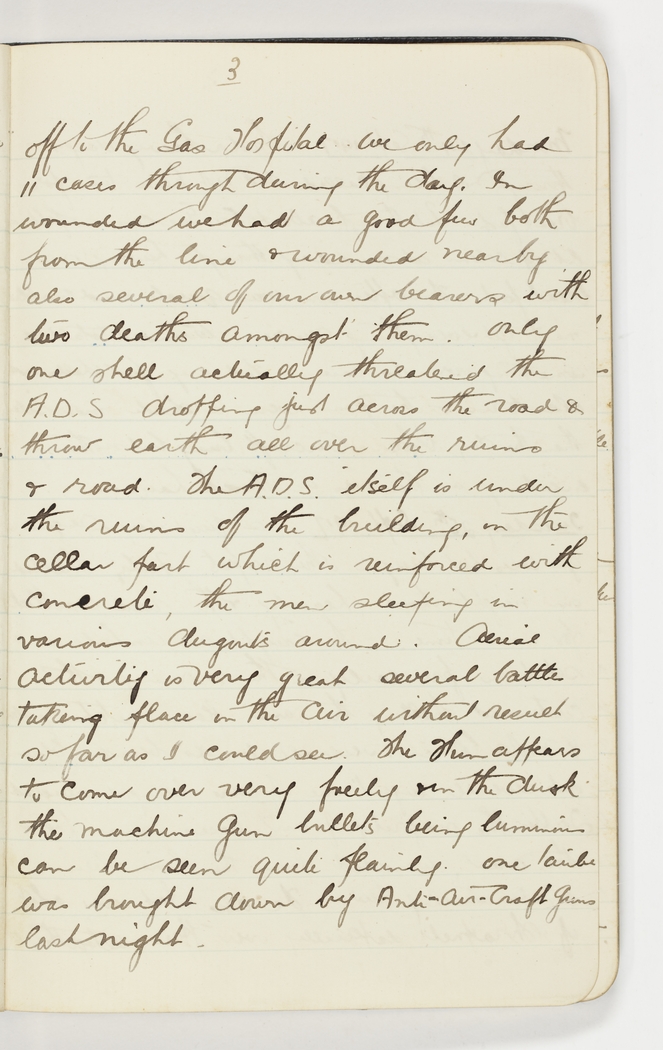 3
off to the Gas Hospital we only had
11 cases through during the day. In
wounded we had a good few both
from the line & wounded nearby
also several of our own bearers with
two deaths amongst them. Only
one shell actually threatened the
A.D.S dropping just across the road &
throw earth all over the ruins
& road. The A.D.S. itself is under
the ruins of the building, in the
cellar part which is reinforced with
concrete, the men sleeping in
various dugouts around. Aerial
activity is very great several battles
taking place in the air without result
so far as I could see. The Hun appears
to come over very freely & in the dusk
the machine gun bullets being luminous
can be seen quite plainly. one taube
was brought down by Anti-Air-Craft Guns
last night.